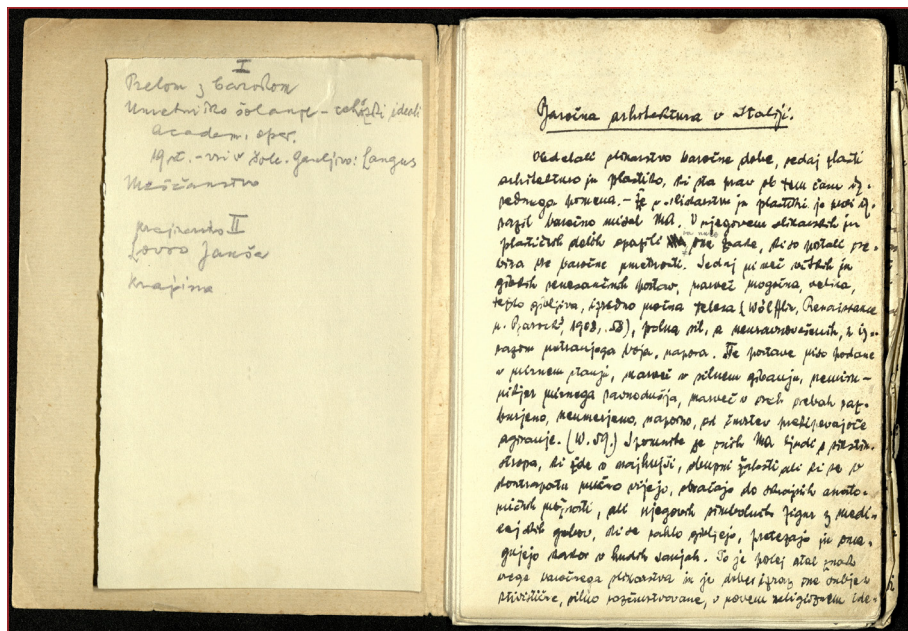 I
Prelom z barokom
Umetniško šolanje - ideali
Academ. oper.
19. st. - vsi v šole. Genljivo: Langus
Meščanstvo
II
Lovro Janša
Krajina
Baročna arhitektura v Italiji.
Obdelali slikarstvo baročne dobe, sedaj
arhitekturo in plastiko, ki sta prav ob tem času iz-
rednega pomena. - Že v slikarstvu in plastiki je prvi iz-
razil baročno misel MA. V njegovem slikarskih in
plastičnih delih opazili one, ki so postali
baročne umetnosti. Sedaj ni več vitkih in
gibkih renesančnih postav, marveč mogočna, velika,
težko gibljiva, izredno močna telesa (Wölfflin, Renaissance
u. Barock, 1908, 58), polna sil, a neuravnovešenih, z iz-
razom notranjega boja, napora. Te postave niso podane
v mirnem stanju, marveč v silnem gibanju, nemirn-
nikjer mirnega ravnodušja, marveč v vseh osebah raz-
burjeno, neumerjeno, naporno, od čustev prekipevajoče
agiranje. (W. 59.) Spomnite se onih MA ljudi s sikstin.
stropa, ki žde v najhujši, obupni žalosti ali ki se v
kontrapostu mučno vijejo, obračajo do skrajnih anato-
mičnih možnosti, ali njegovih simboličnih figur z medi-
cejskih grobov, ki se težko gibljejo, pretezajo in
kakor v hudih sanjah. To je potej stal znak
vsega baročnega slikarstva in je dober izraz one subjek-
tivistične, silno razčustvovane, v novem religioznem ide-